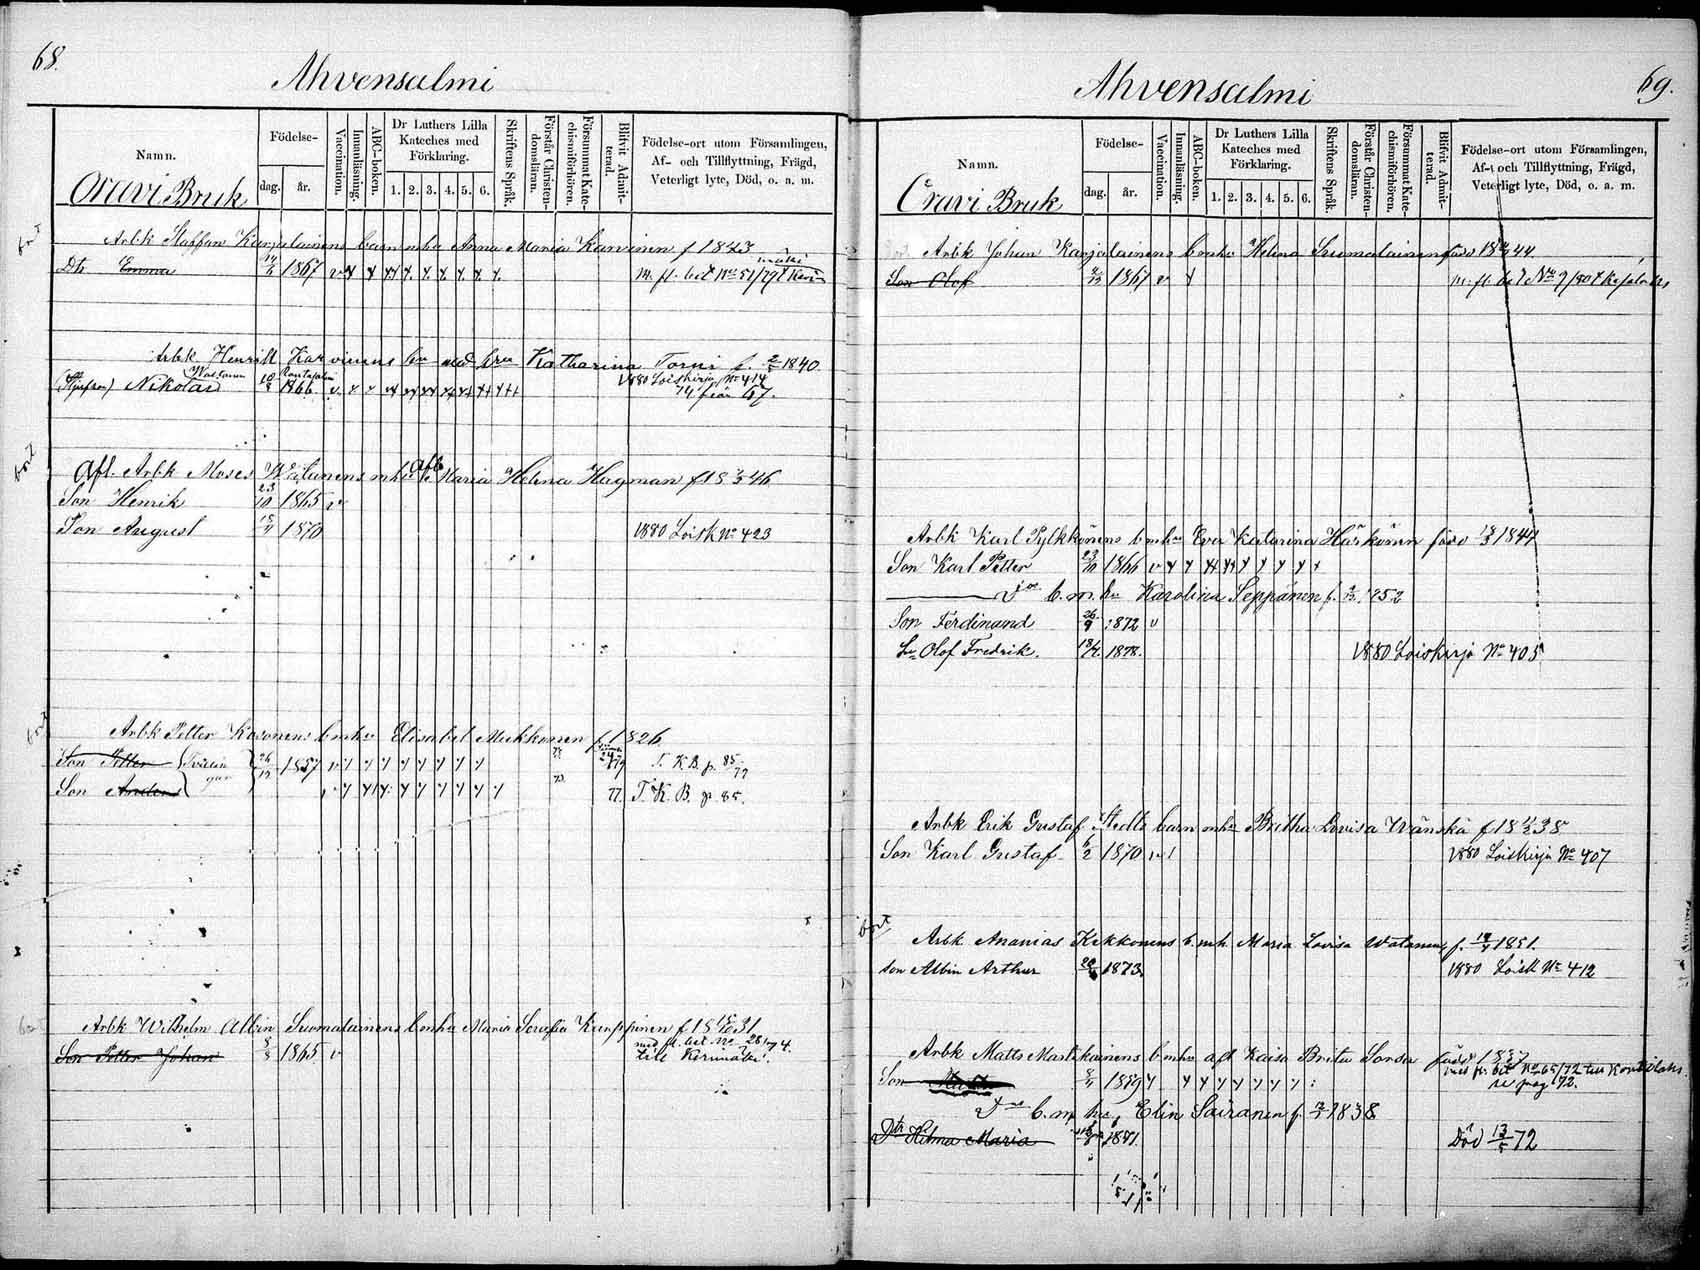 68.
Ahvensalmi
Namn.
Födelse-
dag.
år.
Vaccination.
Innanläsning.
ABC-boken.
Dr Luthers Lilla
Kateches med
Förklaring.
1. 2. 3. 4. 5. 6.
Skriftens Språk.
Förstår Christen-
domsläran.
Försummat Kate-
chismiförhören.
Blifvit Admit-
terad.
Födelse-ort utom Församlingen,
Af- och Tillflyttning, Frägd,
Veterligt lyte, Död, o. a. m.
Oravi Bruk
bort
Arbk Staffan Karjalainens barn mha Anna Maria Karvinen f 1823
Dtr Emma 1867 v m. fl. bet No 51/79 t Keri-
mäki
Arbk Henrik Karvinens bn med hru Katharina Torni f. 2/5 1840
Nikolai Wastanen 10/8 1866 v 1880 Loiskirja No 414
från 67.
bort
Afl. Arbk Moses mha afl. Maria Helena Hagman f 18 46
Son Henrik 23/10 1865 v
Son August 1870 1880 Loisk No 423
bort
Arbk Petter Kosonens b mha Elisabet Mukkonen f 1826
Son Petter Tvillin 26/12 1857 v 79 T. K. B. p. 85/79
Son Anders gar 77. T. K. B. p. 85.
Arbk Wilhelm Albin Suomalainens b mha Maria Serafia Kurppinen f 18 31
Son Petter Johan 8/8 1865 v med fl. bet No 28 74.
till Kerimäki.
69.
Ahvensalmi
Namn.
Födelse-
dag.
år.
Vaccination.
Innanläsning.
ABC-boken.
Dr Luthers Lilla
Kateches med
Förklaring.
1. 2. 3. 4. 5. 6.
Skriftens Språk.
Förstår Christen-
domsläran.
Försummat Kate-
chismiförhören.
Blifvit Admit-
terad.
Födelse-ort utom Församlingen,
Af- och Tillflyttning, Frägd,
Veterligt lyte, Död, o. a. m.
Oravi Bruk
Arbk Johan Karjalainens b mha Helena Suomalainen född 18 44
Son Olof 1867 v m. fl. bet No 9/80 t
Arbk Karl Pylkkönens b mha Eva Katarina Härkönen född 1844
Son Karl Petter 23/10 1866 v
b. m. hu Karolina Seppänen f. 1852
Son Ferdinand 26/9 1872 v
Olof Fredrik. 18/7. 1878. 1880 Loiskirja No 405
Arbk Erik Gustaf Stedts barn mha Britha Lovisa Wänskä f 18 38
Son Karl Gustaf 6/2 1870 1880 Loiskirja No 407
bort
Arbk Ananias Kekkonens b. mh. Maria Lovisa Watanen, f. 1851.
Son Albin Arthur 1873 1880 Loisk No 412
Arbk Matts Martikainens b mha afl Kaisa Brita Sorsa född 18 27
Son 1859 med fl. bet No 65/72 till
se pag 72.
b. m. hu Elin Sairanen f. 1838
Dtr Hilma Maria 1871. Död 13/5 72